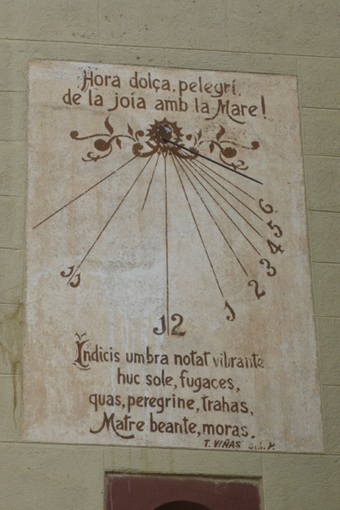 Hora dolça, pelegrí,
de la joia amb la Mare!
6
5
4
3
2
1
12
11
Indicis umbra notat vibrante
huc sole, fugaces,
quas, peregrine, trahas,
Matre beante, moras.
T. VIÑAS